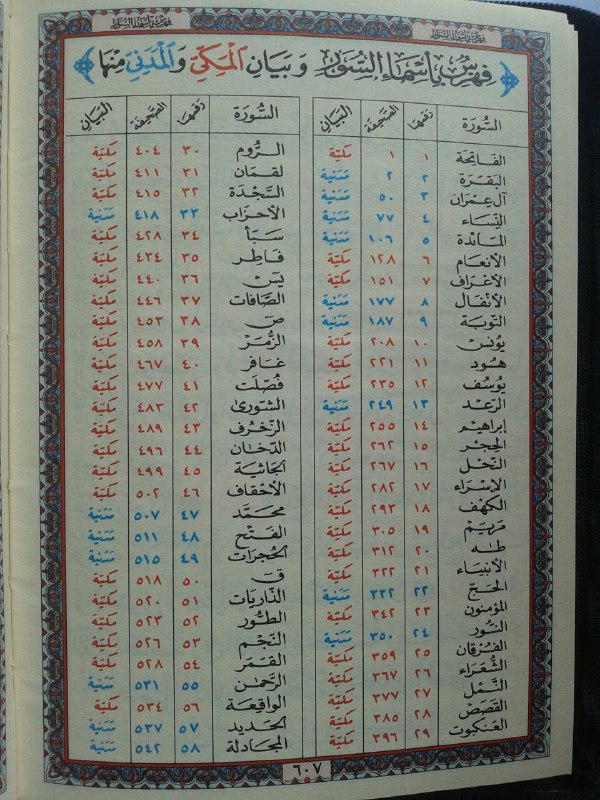 فهرس بأسماء السور
فهرس بأسماء السور
فهرس بأسماء السور وبيان المكي والمدني منها
السورة رقمها الصحيفة البيان
الفاتحة ١ ١ مكية
البقرة ٢ ٢ مدنية
آل عمران ٣ ٥٠ مدنية
النساء ٤ ٧٧ مدنية
المائدة ٥ ١٠٦ مدنية
الأنعام ٦ ١٢٨ مكية
الأعراف ٧ ١٥١ مكية
الأنفال ٨ ١٧٧ مدنية
التوبة ٩ ١٨٧ مدنية
يونس ١٠ ٢٠٨ مكية
هود ١١ ٢٢١ مكية
يوسف ١٢ ٢٣٥ مكية
الرعد ١٣ ٢٤٩ مدنية
إبراهيم ١٤ ٢٥٥ مكية
الحجر ١٥ ٢٦٢ مكية
النحل ١٦ ٢٦٧ مكية
الإسراء ١٧ ٢٨٢ مكية
الكهف ١٨ ٢٩٣ مكية
مريم ١٩ ٣٠٥ مكية
طه ٢٠ ٣١٢ مكية
الأنبياء ٢١ ٣٢٢ مكية
الحج ٢٢ ٣٣٢ مدنية
المؤمنون ٢٣ ٣٤٢ مكية
النور ٢٤ ٣٥٠ مدنية
الفرقان ٢٥ ٣٥٩ مكية
الشعراء ٢٦ ٣٦٧ مكية
النمل ٢٧ ٣٧٧ مكية
القصص ٢٨ ٣٨٥ مكية
العنكبوت ٢٩ ٣٩٦ مكية
السورة رقمها الصحيفة البيان
الروم ٣٠ ٤٠٤ مكية
لقمان ٣١ ٤١١ مكية
السجدة ٣٢ ٤١٥ مكية
الأحزاب ٣٣ ٤١٨ مدنية
سبأ ٣٤ ٤٢٨ مكية
فاطر ٣٥ ٤٣٤ مكية
يس ٣٦ ٤٤٠ مكية
الصافات ٣٧ ٤٤٦ مكية
ص ٣٨ ٤٥٣ مكية
الزمر ٣٩ ٤٥٨ مكية
غافر ٤٠ ٤٦٧ مكية
فصلت ٤١ ٤٧٧ مكية
الشورى ٤٢ ٤٨٣ مكية
الزخرف ٤٣ ٤٨٩ مكية
الدخان ٤٤ ٤٩٦ مكية
الجاثية ٤٥ ٤٩٩ مكية
الأحقاف ٤٦ ٥٠٢ مكية
محمد ٤٧ ٥٠٧ مدنية
الفتح ٤٨ ٥١١ مدنية
الحجرات ٤٩ ٥١٥ مدنية
ق ٥٠ ٥١٨ مكية
الذاريات ٥١ ٥٢٠ مكية
الطور ٥٢ ٥٢٣ مكية
النجم ٥٣ ٥٢٦ مكية
القمر ٥٤ ٥٢٨ مكية
الرحمن ٥٥ ٥٣١ مدنية
الواقعة ٥٦ ٥٣٤ مكية
الحديد ٥٧ ٥٣٧ مدنية
المجادلة ٥٨ ٥٤٢ مدنية
٦٠٧